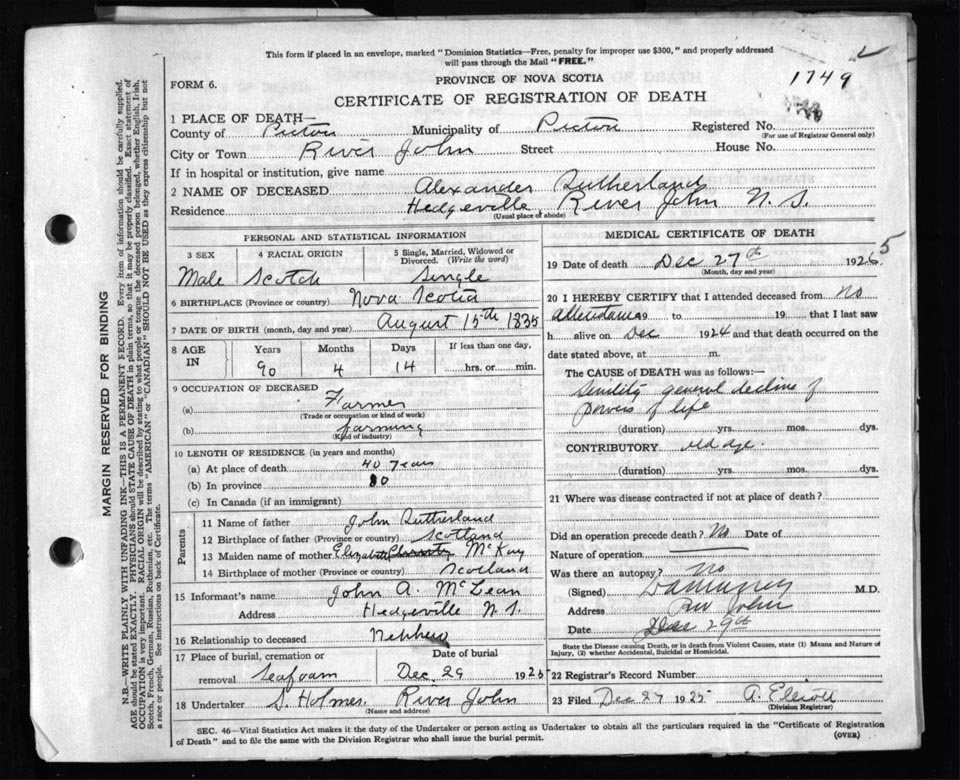 This form if placed in an envelope, marked "Dominion Statistics—Free, penalty for improper use $300," and properly addressed
will pass through the Mail "FREE."
FORM 6.
PROVINCE OF NOVA SCOTIA
1749
CERTIFICATE OF REGISTRATION OF DEATH
1 PLACE OF DEATH—
County of Pictou Municipality of Pictou Registered No.
(For use of Registrar General only)
City or Town River John Street House No.
If in hospital or institution, give name
2 NAME OF DECEASED Alexander Sutherland
Residence Hedgeville River John N. S.
(Usual place of abode)
PERSONAL AND STATISTICAL INFORMATION
3 SEX 4 RACIAL ORIGIN 5 Single, Married, Widowed or Divorced. (Write the word)
Male Scotch Single
6 BIRTHPLACE (Province or country) Nova Scotia
7 DATE OF BIRTH (month, day and year) August 15th 1835
8 AGE IN Years Months Days If less than one day,
90 4 14 hrs. or min.
9 OCCUPATION OF DECEASED
(a) Farmer
(Trade or occupation or kind of work)
(b) farming
(Kind of industry)
10 LENGTH OF RESIDENCE (in years and months)
(a) At place of death 40 years
(b) In province
(c) In Canada (if an immigrant)
Parents
11 Name of father John Sutherland
12 Birthplace of father (Province or country) Scotland
13 Maiden name of mother Elizabeth Christy McKay
14 Birthplace of mother (Province or country) Scotland
15 Informant's name John A. McLean
Address Hedgeville N. S.
16 Relationship to deceased Nephew
17 Place of burial, cremation or removal Seafoam
Date of burial Dec 29 1925
18 Undertaker S. Holmes River John
(Name and address)
MEDICAL CERTIFICATE OF DEATH
19 Date of death Dec 27th 1925
(Month, day and year)
20 I HEREBY CERTIFY that I attended deceased from no
attendance 19 to 19 that I last saw
h alive on Dec 1924 and that death occurred on
date stated above, at m.
The CAUSE of DEATH was as follows:—
Senility general decline of
powers of life
(duration) yrs. mos. dys.
CONTRIBUTORY old age.
(duration) yrs. mos. dys.
21 Where was disease contracted if not at place of death?
Did an operation precede death? No Date of
Nature of operation
Was there an autopsy? No
(Signed) M.D.
Address River John
Date Dec 29th
State the Disease causing Death, or in death from Violent Causes, state (1) Means and Nature of
Injury, (2) whether Accidental, Suicidal or Homicidal.
22 Registrar's Record Number
23 Filed Dec 27 1925 A. Elliott
(Division Registrar)
SEC. 46—Vital Statistics Act makes it the duty of the Undertaker or person acting as Undertaker to obtain all the particulars required in the "Certificate of Registration
of Death" and to file the same with the Division Registrar who shall issue the burial permit.
(OVER)
MARGIN RESERVED FOR BINDING
N.B.—WRITE PLAINLY WITH UNFADING INK—THIS IS A PERMANENT RECORD. Every item of information should be carefully supplied.
AGE should be stated EXACTLY. PHYSICIANS should STATE CAUSE OF DEATH in plain terms, so that it may be properly classified. Exact statement of
OCCUPATION is very important. RACIAL ORIGIN will be described by stating to what people or tongue the deceased person belonged, whether English, Irish,
Scotch, French, German, Russian, Ruthenian, etc. The terms "AMERICAN" or "CANADIAN" SHOULD NOT BE USED as they express citizenship but not
a race or people. See instructions on back of Certificate.